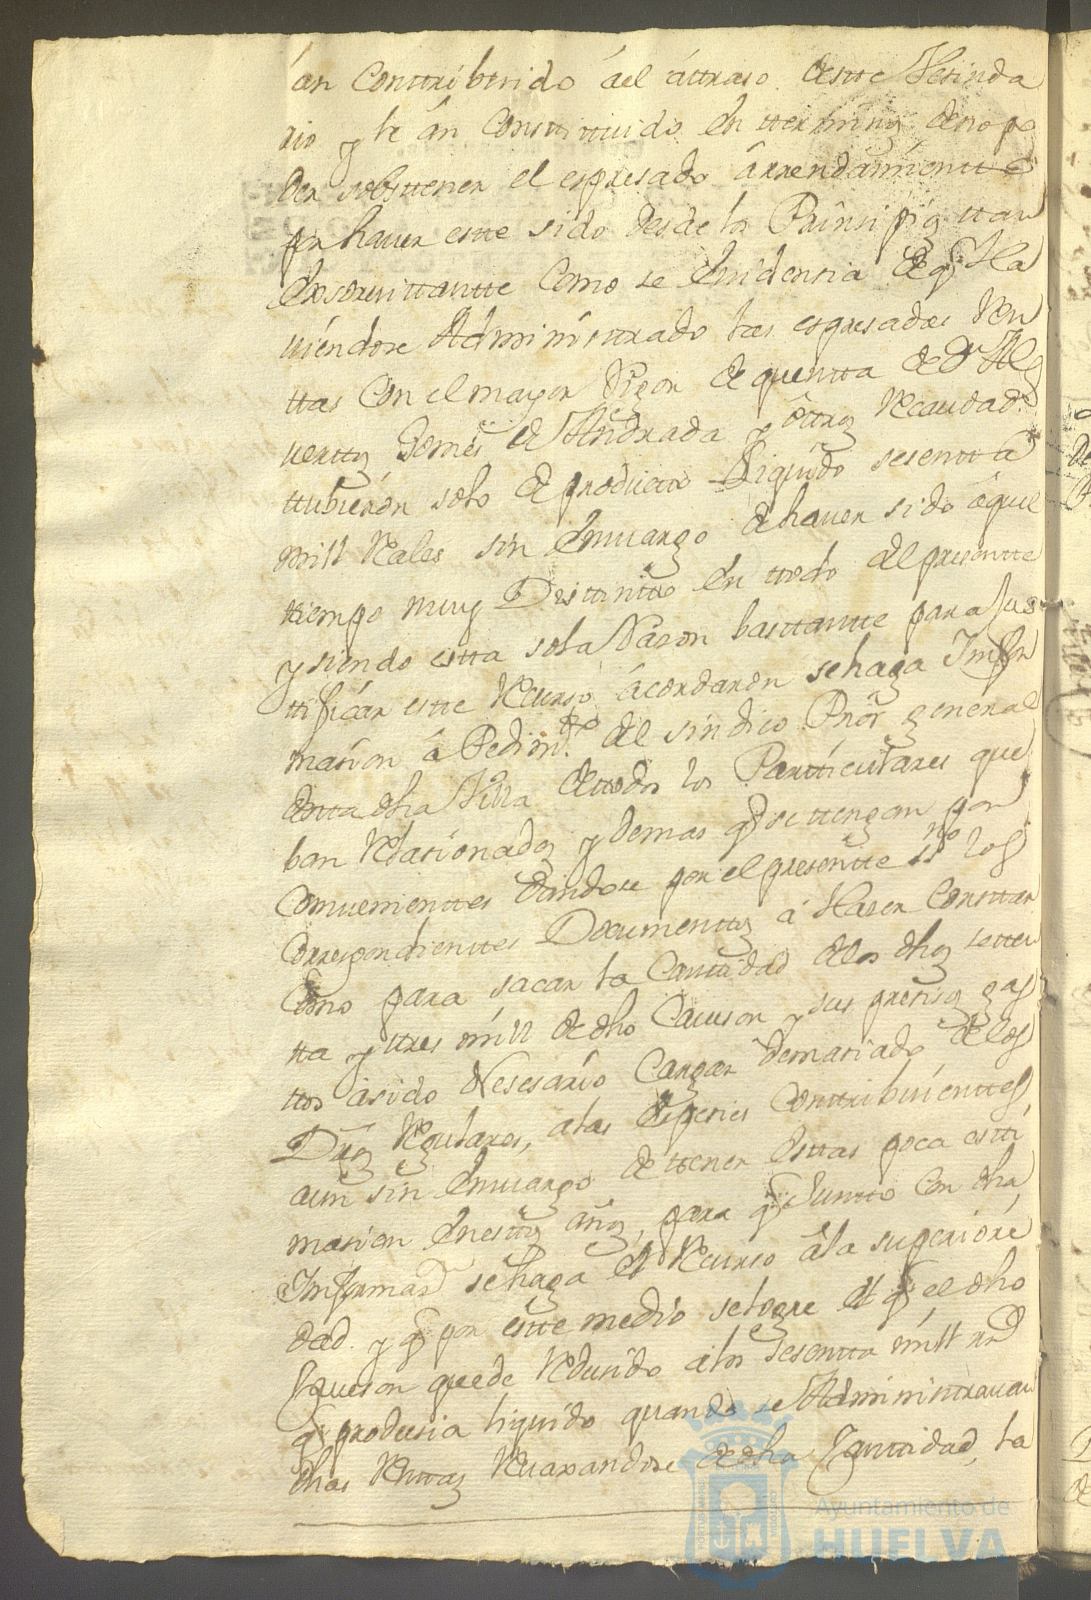 an Conttribuido áel áttraso destte Vesinda
rio y le án Constittuido en tterminos deno po
der sobsttener el espresado ârrendamientto
por haver estte sido desde los Prinsipios ttan
Exsorvittantte Como se Evidensia de q.e Ha
viéndose Administrado las espresadas Ren
ttas Con el mayor Rigor de quentta de D.n Al
verttos Gomés de Andrada y ôttros Recaudad.s
ttubierón solo de productto Liquido sesentta
mill Reales sin Envargo de haver sido áquel
tiempo muy Disttintto En ttodo del presentte
y siendo estta sola Razon basttantte para Jus
tificár estte Recurso ácordaron sehaga Infor
masion â Pedim.to del síndico Pror general
destta dha Villa dettodos los Partticulares que
ban Relasionados y demas q.e se ttengan por
Convenienttes dandose por el presentte ss.no los
Correspondienttes Documenttos á Haser Consttar
Como para sacar la Canttidad delos dhos setten
tta y ttres mill de dho Caveson y sus presisos gas
ttos ásido Nesesário Cargar demasiado delos
Dros Regulares, alas Espesies Conttribuienttes
aun sin Envargo de ttener Esttas poca estti
masion Enesttos años, para q.e Juntto Con dha
Informas.n sehaga el Recurso âla superiori
dad. y q.e por estte medio selogre el q.e el dho
Caveson quede Redusido alos sesentta mill rrs
q.e produsia liquido quando se Administravan
dhas Renttas Revaxandose de dha Canttidad, la
Ayuntamiento de
HUELVA